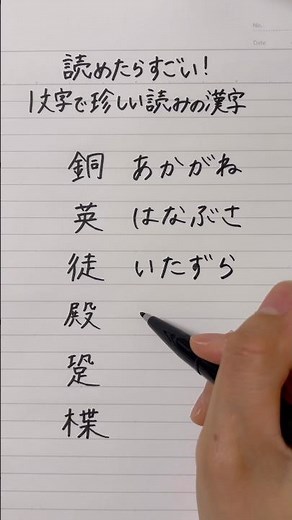 No.
Date
読めたらすごい!
1文字で珍しい読みの漢字
銅 あかがね
英 はなぶさ
徒 いたずら
殿
跫
楪